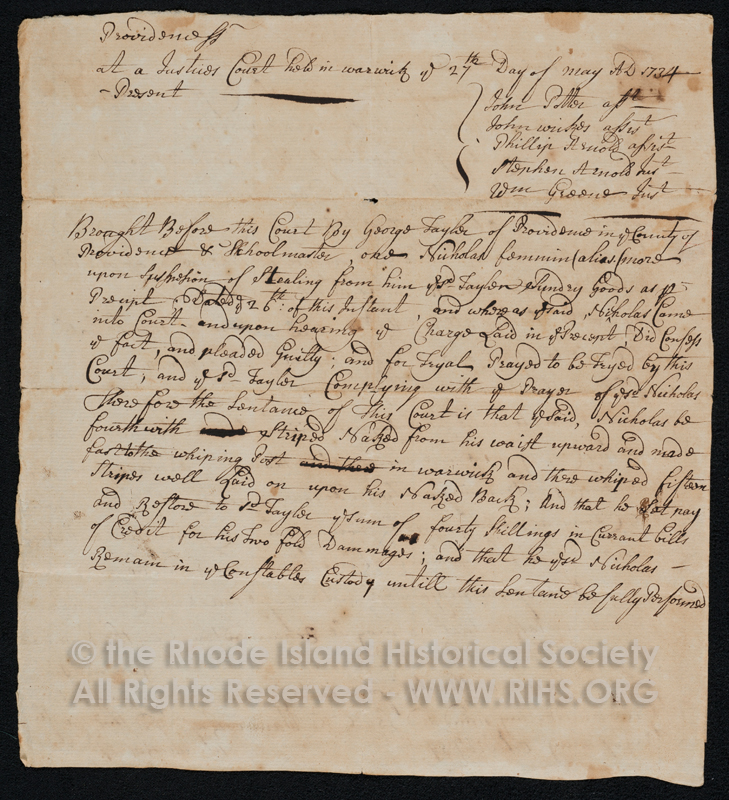 Providence ss
at a Justices Court held in warwick ye 27th Day of may AD 1734
- Present
John Potter asst
John wickes assist
Phillip Arnold assist
Stephen Arnold Just
Wm Greene Just
Brought Before this Court By George Tayler of Providence in ye County of
Providence & Schoolmaster one Nicholas (alias) more
upon Suspesion of Stealing from him ye sd Tayler Sundry Goods as pr
Precipt Dated ye 26th: of this Instant, and where as ye said, Nicholas Came
into Court and upon hearing ye Charge Laid in ye Precept, Did Confess
ye fact, and pleaded Guilty; and for Tryal Prayed to be Tryed by this
Court, and ye sd Tayler Complying with ye Prayer of ye sd Nicholas
Therefore the Sentance of this Court is that ye said, Nicholas be
fourthwith Striped Naked from his waist upward and made
fast to the whiping Post and there in warwick and there whiped fifteen
Stripes well Laid on upon his Naked Back; And that he pay
and Restore to sd Tayler ye Sum of fourty Shillings in Currant bills
of Credit for his Two fold Dammages; and that he ye sd Nicholas -
Remain in ye Constables Custody untill this Sentance be fully Performed
© the Rhode Island Historical Society
All Rights Reserved - WWW.RIHS.ORG